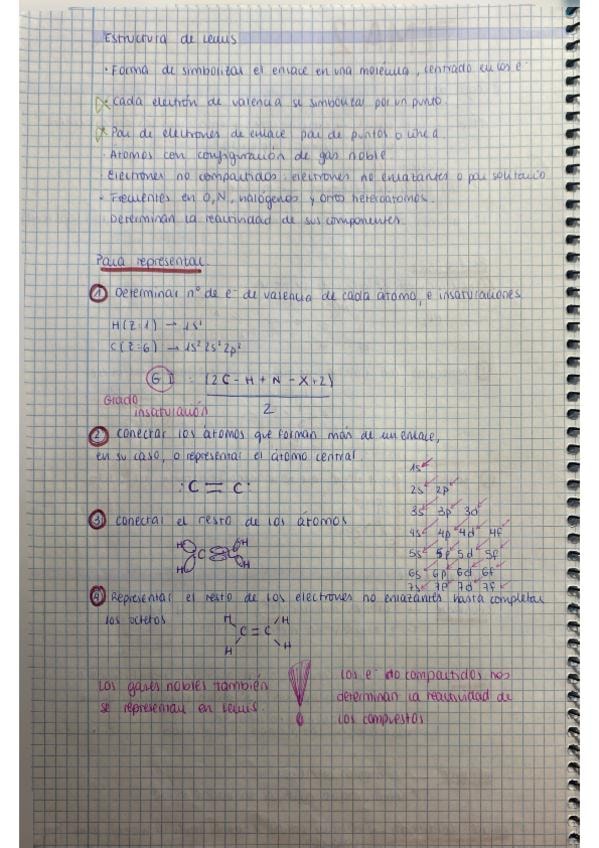 Estructura de Lewis
· Forma de simbolizar el enlace en una molécula, centrado en los e⁻
· Cada electrón de valencia se simboliza por un punto
· Par de electrones de enlace par de puntos o línea
· Átomos con configuración de gas noble
· Electrones no compartidos: electrones no enlazantes o par solitario
· Frecuentes en O, N, halógenos y otros heteroátomos.
Determinan la reactividad de sus componentes
Para representar.
1 Determinar nº de e⁻ de valencia de cada átomo, e insaturaciones
H(Z=1) → 1s¹
C(Z=6) → 1s² 2s² 2p²
GI = (2C - H + N - X + 2)
2
Grado insaturación
2 Conectar los átomos que forman más de un enlace,
en su caso, o representar el átomo central.
:C = C:
1s
2s 2p
3s 3p 3d
4s 4p 4d 4f
5s 5p 5d 5f
6s 6p 6d 6f
7s 7p 7d 7f
3 Conectar el resto de los átomos
H H
C C
H H
4 Representar el resto de los electrones no enlazantes hasta completar
los octetos
H H
C = C
H H
Los gases nobles también
se representan en Lewis.
Los e⁻ no compartidos nos
determinan la reactividad de
los compuestos